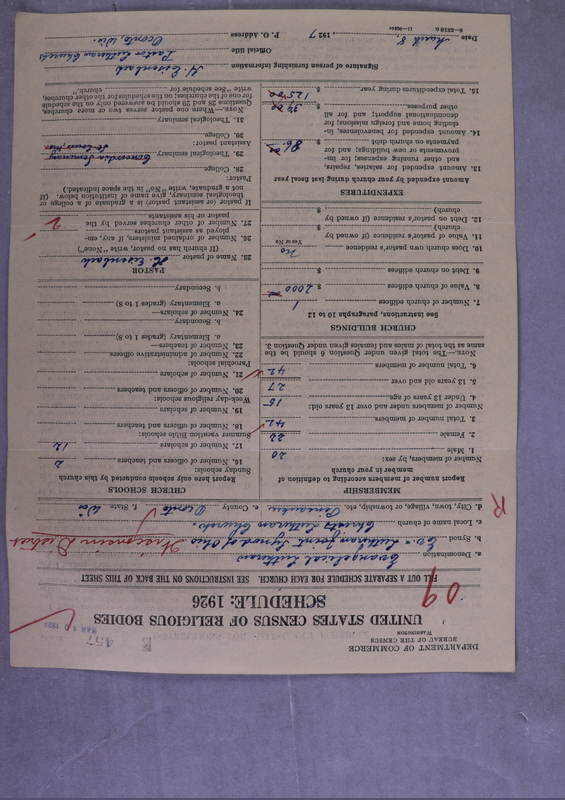 DEPARTMENT OF COMMERCE
BUREAU OF THE CENSUS
WASHINGTON
457
MAR 1927
UNITED STATES CENSUS OF RELIGIOUS BODIES
SCHEDULE: 1926
09
FILL OUT A SEPARATE SCHEDULE FOR EACH CHURCH. SEE INSTRUCTIONS ON THE BACK OF THIS SHEET
a. Denomination Evangelical Lutheran
b. Synod Ev. Lutheran Joint Synod of Ohio Wisconsin District
c. Local name of church Christ Lutheran Church.
d. City, town, village, or township, etc. Pensaukee e. County Oconto f. State Wis
R
MEMBERSHIP
Report number of members according to definition of member in your church
Number of members, by sex:
1. Male 20
2. Female 22
3. Total number of members 42
Number of members under and over 13 years old:
4. Under 13 years of age 15
5. 13 years old and over 27
6. Total number of members 42
NOTE.—The total given under Question 6 should be the same as the total of males and females given under Question 3.
CHURCH BUILDINGS
See instructions, paragraphs 10 to 12
7. Number of church edifices 1
8. Value of church edifices $ 2000
9. Debt on church edifices $
10. Does church own pastor's residence no
Yes or No
11. Value of pastor's residence (if owned by church) $
12. Debt on pastor's residence (if owned by church) $
EXPENDITURES
Amount expended by your church during last fiscal year
13. Amount expended for salaries, repairs, and other running expenses; for improvements or new buildings; and for payments on church debt $ 86.00
14. Amount expended for benevolences, including home and foreign missions; for denominational support; and for all other purposes $ 39.00
15. Total expenditures during year $ 125.00
CHURCH SCHOOLS
Report here only schools conducted by this church
Sunday schools:
16. Number of officers and teachers 2
17. Number of scholars 12
Summer vacation Bible schools:
18. Number of officers and teachers
19. Number of scholars
Week-day religious schools:
20. Number of officers and teachers
21. Number of scholars
Parochial schools:
22. Number of administrative officers
23. Number of teachers—
a. Elementary (grades 1 to 8)
b. Secondary
24. Number of scholars—
a. Elementary (grades 1 to 8)
b. Secondary
PASTOR
25. Name of pastor H. Eisenbach
(If church has no pastor, write "None")
26. Number of ordained ministers, if any, employed as assistant pastors
27. Number of other churches served by the pastor or his assistants 2
If pastor (or assistant pastor) is a graduate of a college or theological seminary, give name of institution below. (If not a graduate, write "No" in the space indicated.)
Pastor:
28. College
29. Theological seminary Concordia Seminary
Assistant pastor:
30. College
31. Theological seminary
NOTE.—Where one pastor serves two or more churches, Questions 25 and 29 should be answered only on the schedule for one of the churches; on the schedules for the other churches, write "See schedule for church."
Signature of person furnishing information H. Eisenbach
Official title Pastor Lutheran Church
Date March 8, 1927 P. O. Address Oconto, Wis.